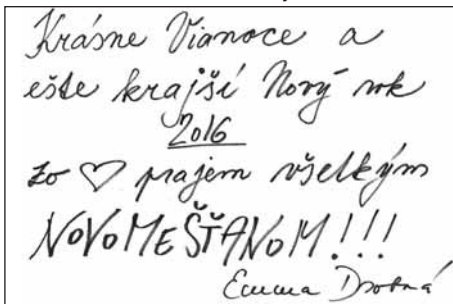 Krásne Vianoce a
ešte krajší Nový rok
2016
zo ♡ prajem všetkým
NOVOMEŠŤANOM!!!
Emma Drobná